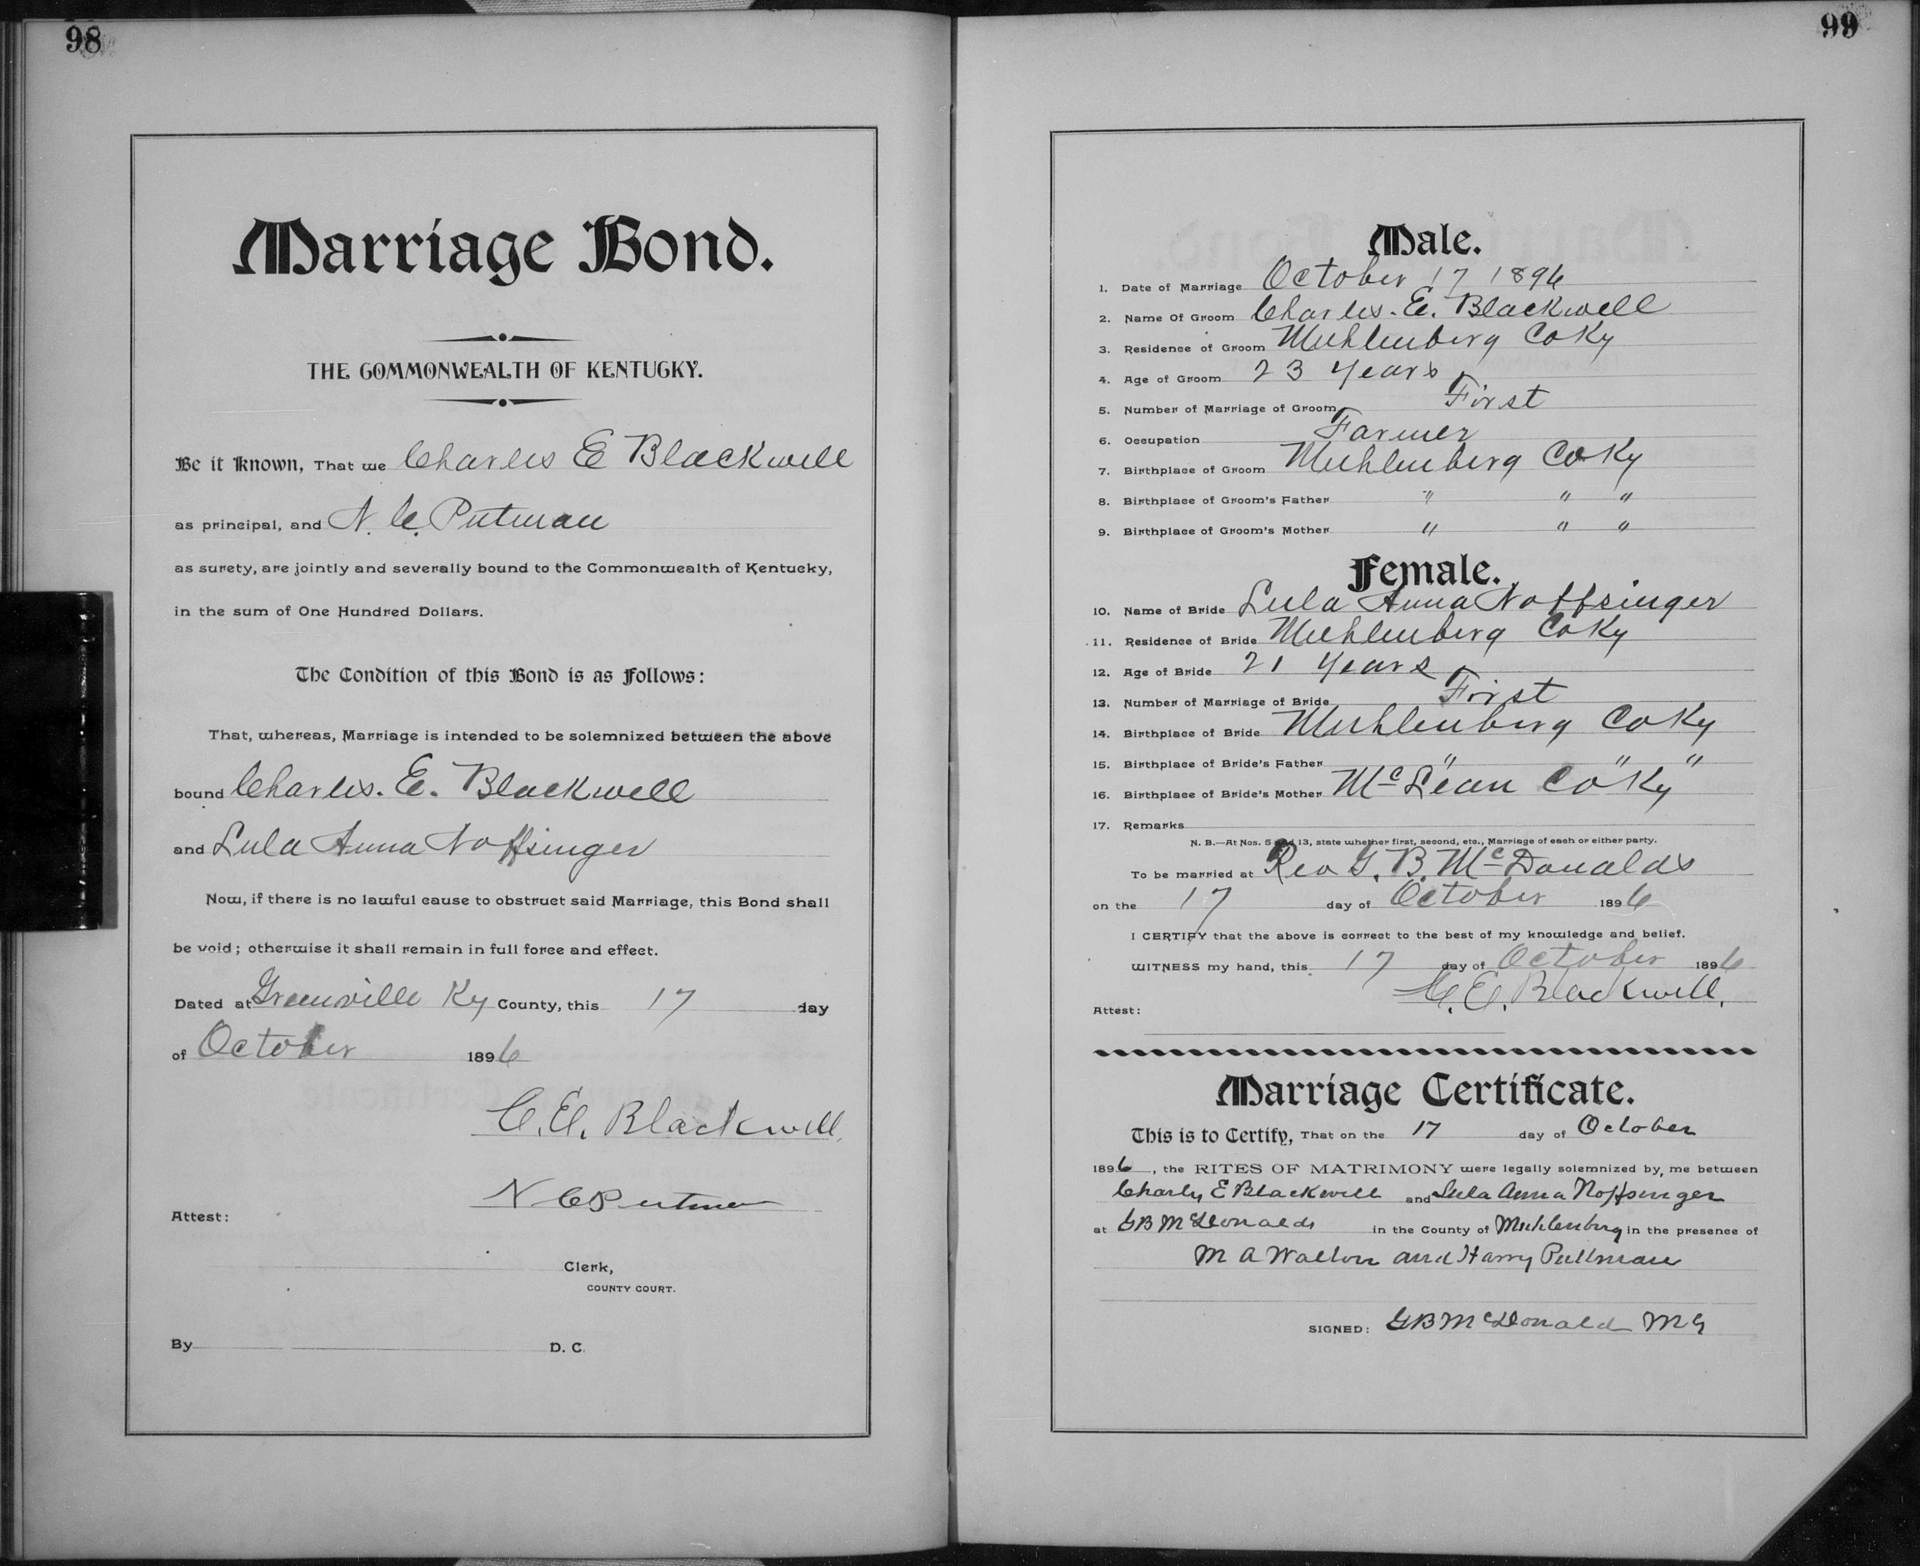 98
Marriage Bond.
THE COMMONWEALTH OF KENTUCKY.
Be it Known, That we Charles E Blackwell
as principal, and N. C. Putman
as surety, are jointly and severally bound to the Commonwealth of Kentucky,
in the sum of One Hundred Dollars.
The Condition of this Bond is as Follows:
That, whereas, Marriage is intended to be solemnized between the above
bound Charles. E. Blackwell
and Lula Anna Noffsinger
Now, if there is no lawful cause to obstruct said Marriage, this Bond shall
be void; otherwise it shall remain in full force and effect.
Dated at Greenville Ky County, this 17 day
of October 1896
C. E. Blackwell,
N C Putman
Attest:
Clerk,
COUNTY COURT.
By D. C.
99
Male.
1. Date of Marriage October 17 1896
2. Name Of Groom Charles. E. Blackwell
3. Residence of Groom Muhlenberg Co Ky
4. Age of Groom 23 Years
5. Number of Marriage of Groom First
6. Occupation Farmer
7. Birthplace of Groom Muhlenberg Co Ky
8. Birthplace of Groom's Father " " "
9. Birthplace of Groom's Mother " " "
Female.
10. Name of Bride Lula Anna Noffsinger
11. Residence of Bride Muhlenberg Co Ky
12. Age of Bride 21 Years
13. Number of Marriage of Bride First
14. Birthplace of Bride Muhlenberg Co Ky
15. Birthplace of Bride's Father " " "
16. Birthplace of Bride's Mother McLean Co Ky
17. Remarks
N. B.—At Nos. 5 and 13, state whether first, second, etc., Marriage of each or either party.
To be married at Rev G. B. McDonalds
on the 17 day of October 1896
I CERTIFY that the above is correct to the best of my knowledge and belief.
WITNESS my hand, this 17 day of October 1896
C. E. Blackwell,
Attest:
Marriage Certificate.
This is to Certify, That on the 17 day of October
1896, the RITES OF MATRIMONY were legally solemnized by me between
Charly E Blackwell and Lula Anna Noffsinger
at G B McDonalds in the County of Muhlenberg in the presence of
M A Walton and Harry Pullman
SIGNED: G B McDonald M G